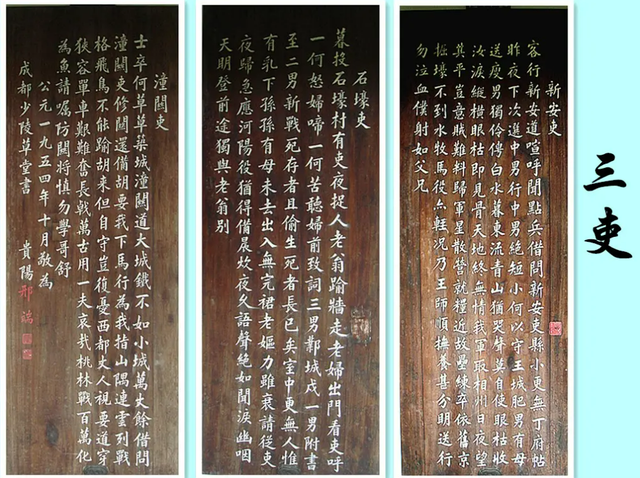 三吏
新安吏
客行新安道喧呼聞點兵借問新安吏縣小更無丁府帖
昨夜下次選中男行中男絕短小何以守王城肥男有母
送瘦男獨伶俜白水暮東流青山猶哭聲莫自使眼枯收
汝淚縱橫眼枯即見骨天地終無情我軍取相州日夜望
其平豈意賊難料歸軍星散營就糧近故壘練卒依舊京
掘壕不到水牧馬役亦輕況乃王師順撫養甚分明送行
勿泣血僕射如父兄
石壕吏
暮投石壕村有吏夜捉人老翁踰牆走老婦出門看吏呼
一何怒婦啼一何苦聽婦前致詞三男鄴城戍一男附書
至二男新戰死存者且偷生死者長已矣室中更無人惟
有乳下孫孫有母未去出入無完裙老嫗力雖衰請從吏
夜歸急應河陽役猶得備晨炊夜久語聲絕如聞淚幽咽
天明登前途獨與老翁別
潼關吏
士卒何草草築城潼關道大城鐵不如小城萬丈餘借問
潼關吏修關還備胡要我下馬行為我指山隅連雲列戰
格飛鳥不能踰胡來但自守豈復憂西都丈人視要道窄
狹容單車艱難奮長戟萬古用一夫哀哉桃林戰百萬化
為魚請囑防關將慎勿學哥舒
公元一九五四年十月敬為
成都少陵草堂書 貴陽邢端